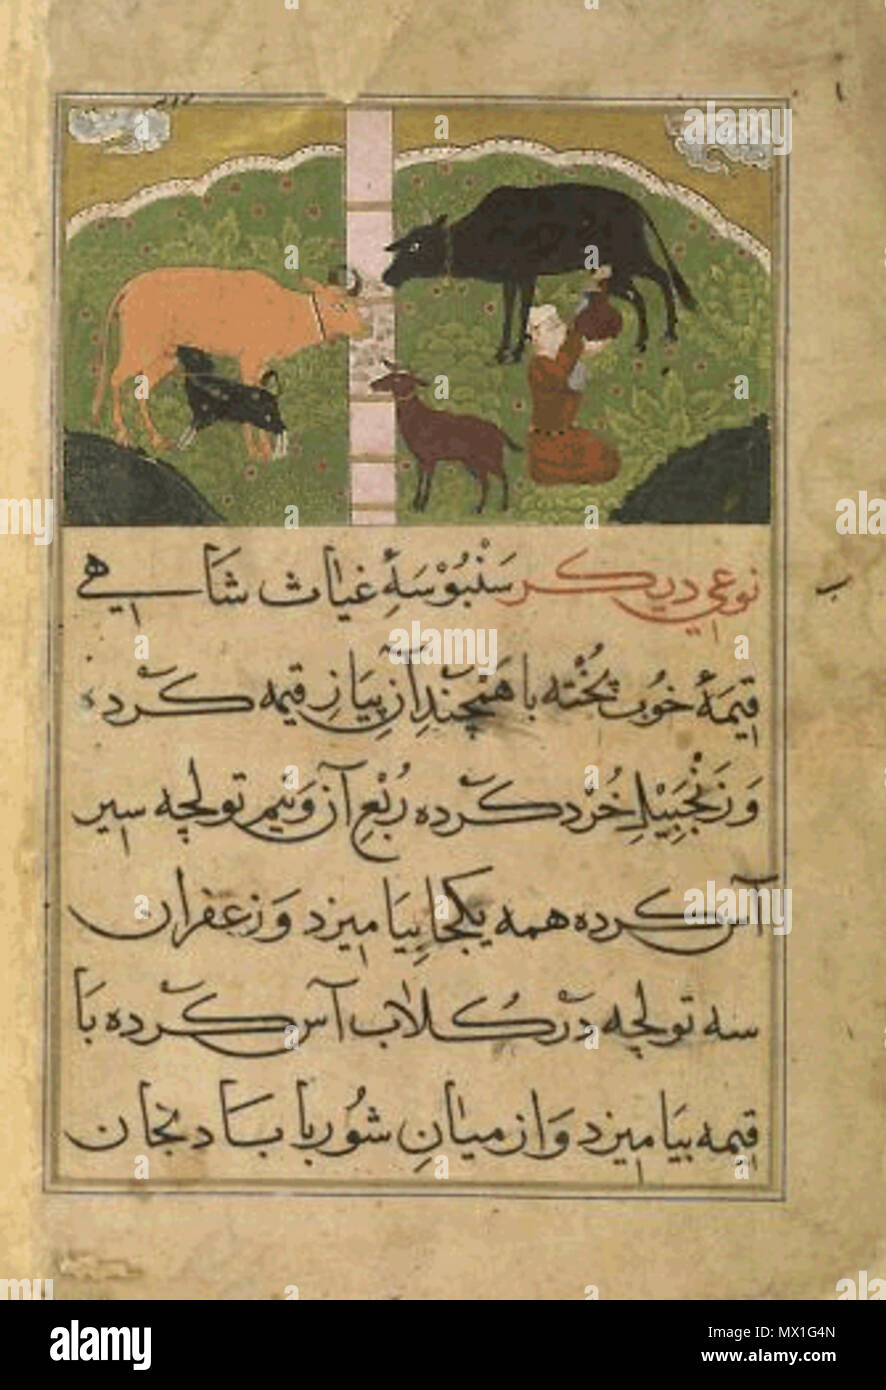 نوعي ديكر سَنْبُوْسَهٔ غياث شاهي
قيمَهٔ خوُب پُخْته با همچَندِ آن پيَازِ قيمه كرده
وَ زنْجَبِيْلِ خُرد كرده رُبْعِ آن وَ نيم تولچه سير
آس كرده همه يكجا بيَاميزد وَ زعفران
سه تولچه دَر كُلاب آس كرده بَا
قيمه بيَاميزد وَ از ميانِ شوُربا بَادنجان
alamy
a
alamy stock photo
MX1G4N
www.alamy.com